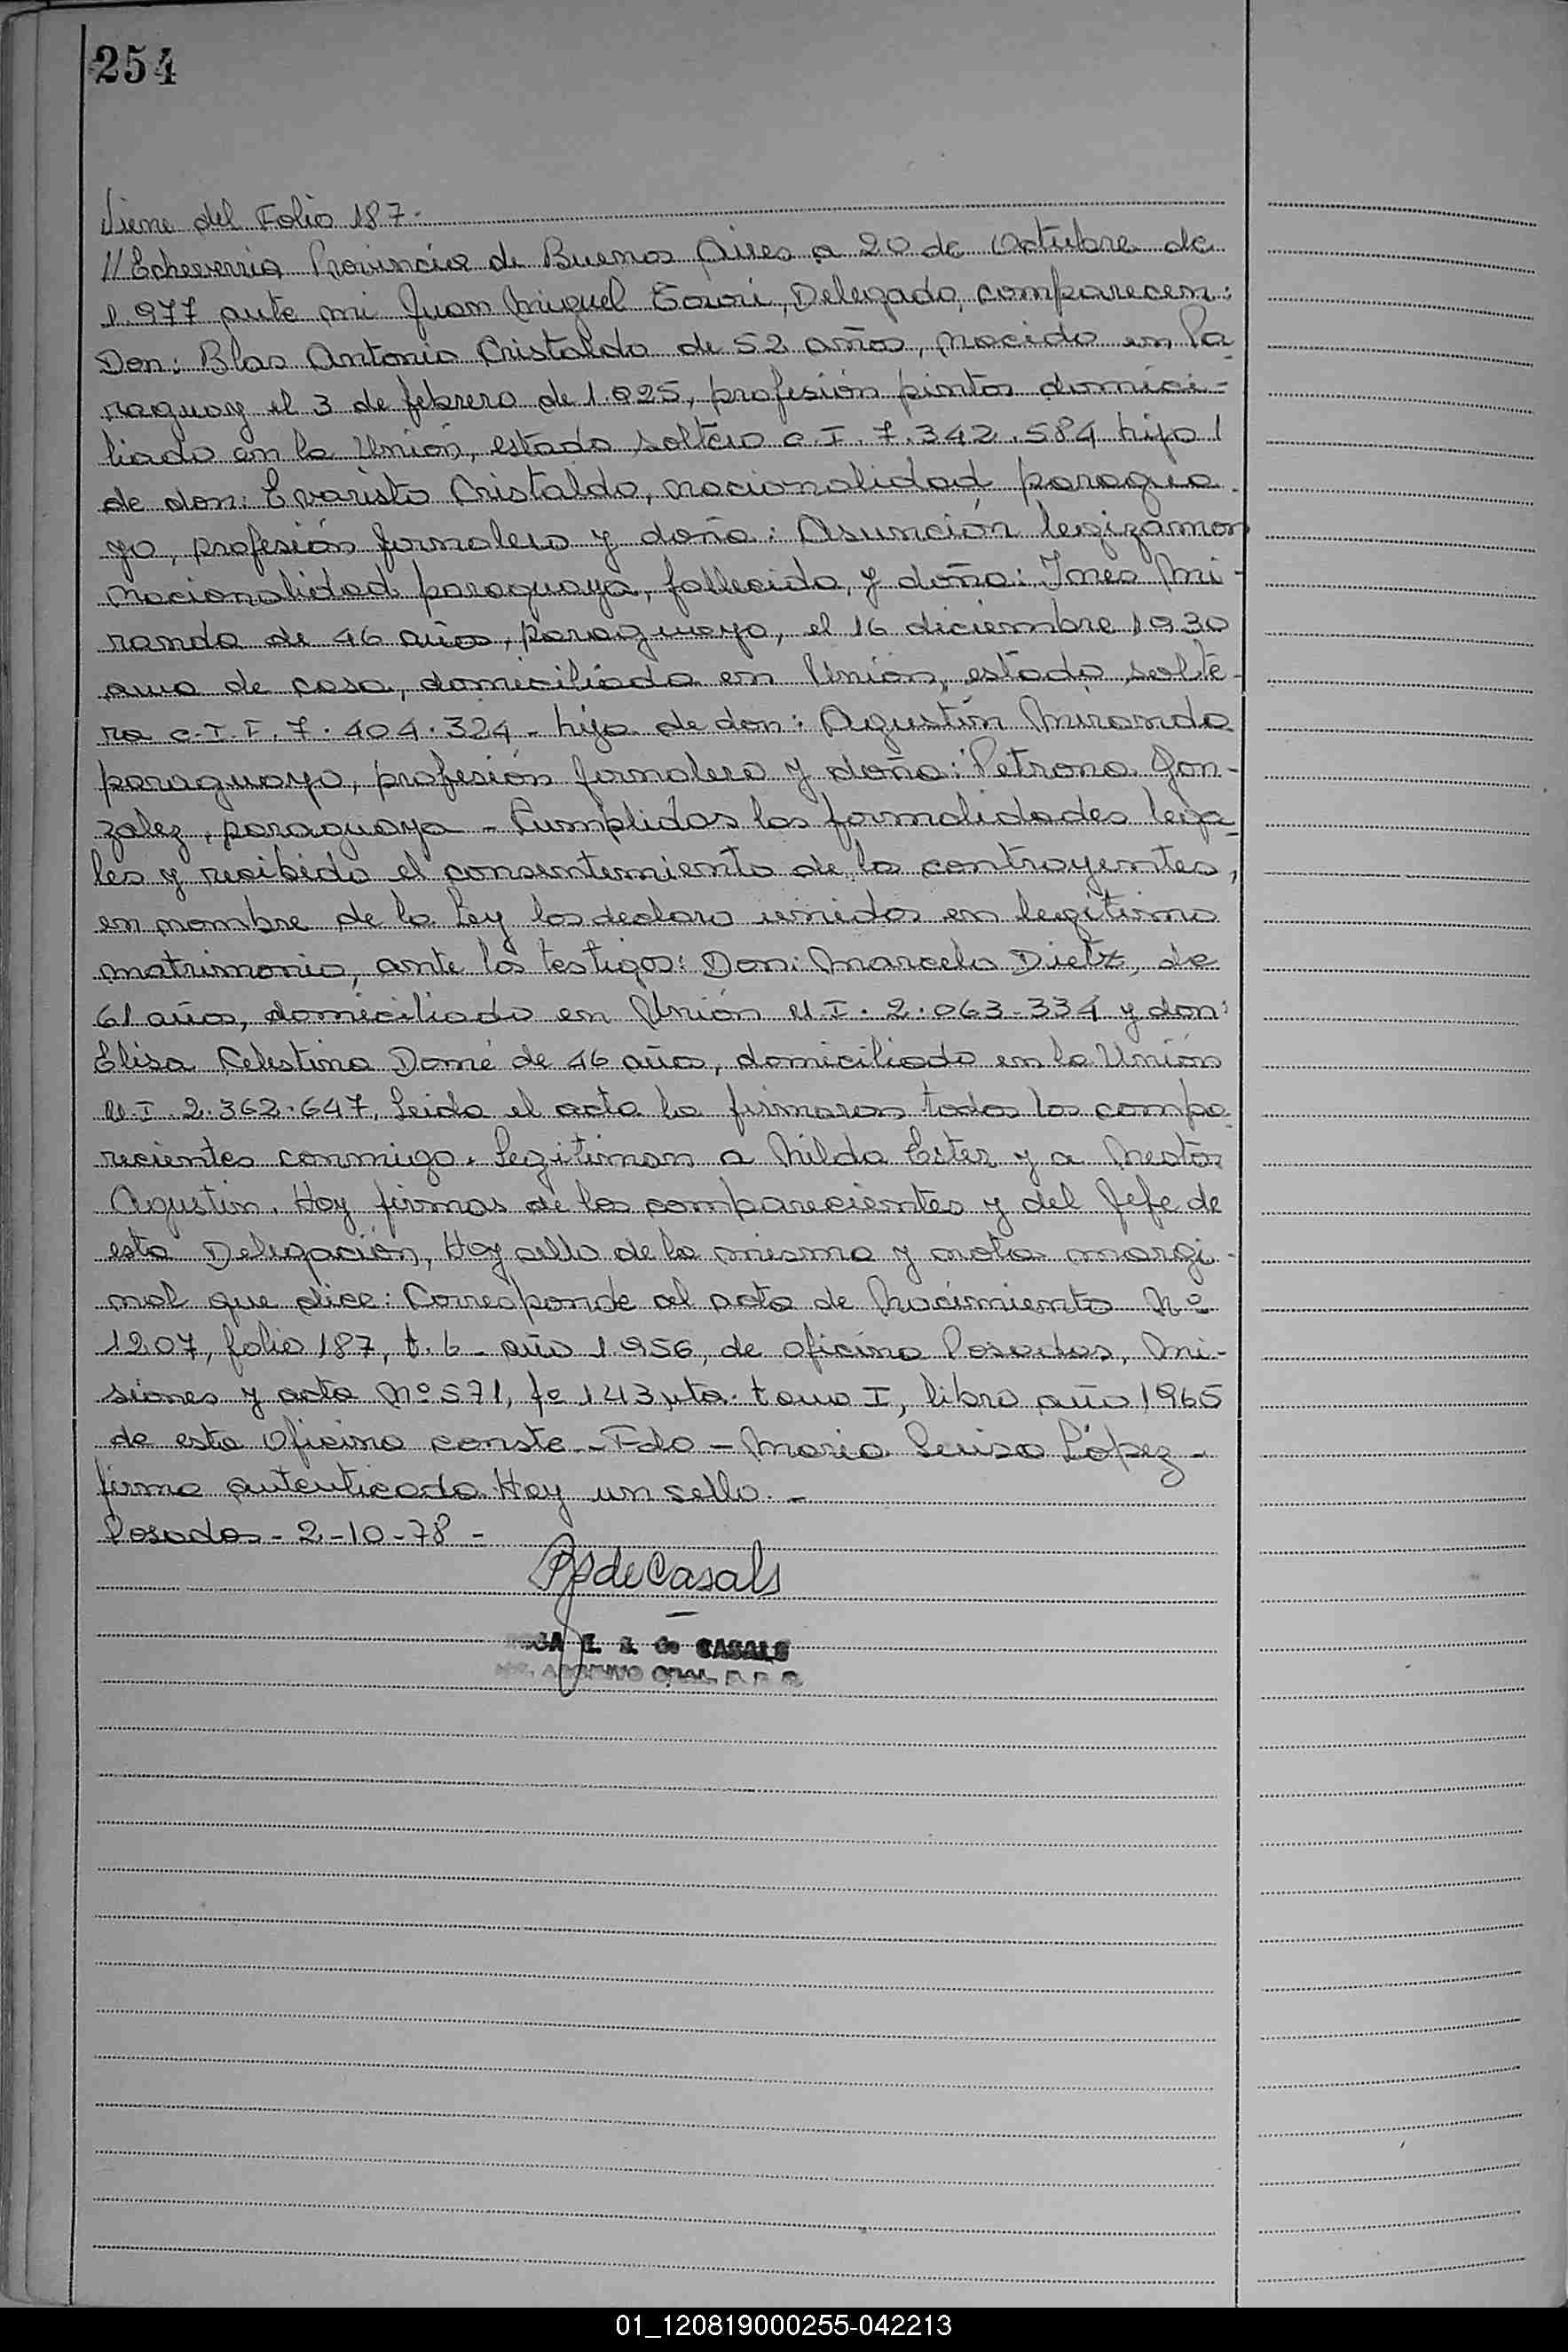 254
Viene del Folio 187.-
//Echeverria Provincia de Buenos Aires a 20 de Octubre de
1.977 ante mi Juan Miguel Downi, Delegado, comparecen:
Don: Blas Antonio Cristaldo de 52 años, nacido en Pa
raguay el 3 de febrero de 1.925, profesión pintor domici-
liado en la Unión, estado soltero c.I. 7.342.584 hijo /
de don: Evaristo Cristaldo, nacionalidad paragua-
yo, profesión jornalero y doña: Asunción legizamon
nacionalidad paraguaya, fallecida, y doña: Ines Mi-
randa de 46 años, paraguaya, el 16 diciembre 1930
ama de casa, domiciliada en Unión, estado solte-
ra c.I.F. 7.404.324- hija de don: Agustín Miranda
paraguayo, profesión jornalero y doña: Petrona Gon-
zalez, paraguaya - Cumplidas las formalidades lega-
les y recibido el consentemiento de los contrayentes,
en nombre de la Ley los declaro unidos en legitimo
matrimonio, ante los testigos: Don: Marcelo Dietz, de
61 años, domiciliado en Unión M.I. 2.063-334 y don:
Elisa Celestina Domé de 46 años, domiciliado en la Unión
M.I. 2.362.647, Leida el acta la firmaron todos los compa-
recientes conmigo. Legitiman a Nilda Ester y a Nestor
Agustin. Hay firmas de los comparecientes y del Jefe de
esta Delegación, Hay sello de la misma y nota margi-
nal que dice: Corresponde al acta de Nacimiento Nº
1207, folio 187, t. 6- año 1956, de oficina Posadas, Mi-
siones y acta Nº 571, fº 143 vta. tomo I, libro año 1965
de esta Oficina conste.- Fdo - Maria Luisa López-
firma autenticada. Hay un sello. -
Posadas - 2-10-78 -
de Casals
de CASALS
ARCHIVO GRAL.
01_120819000255-042213